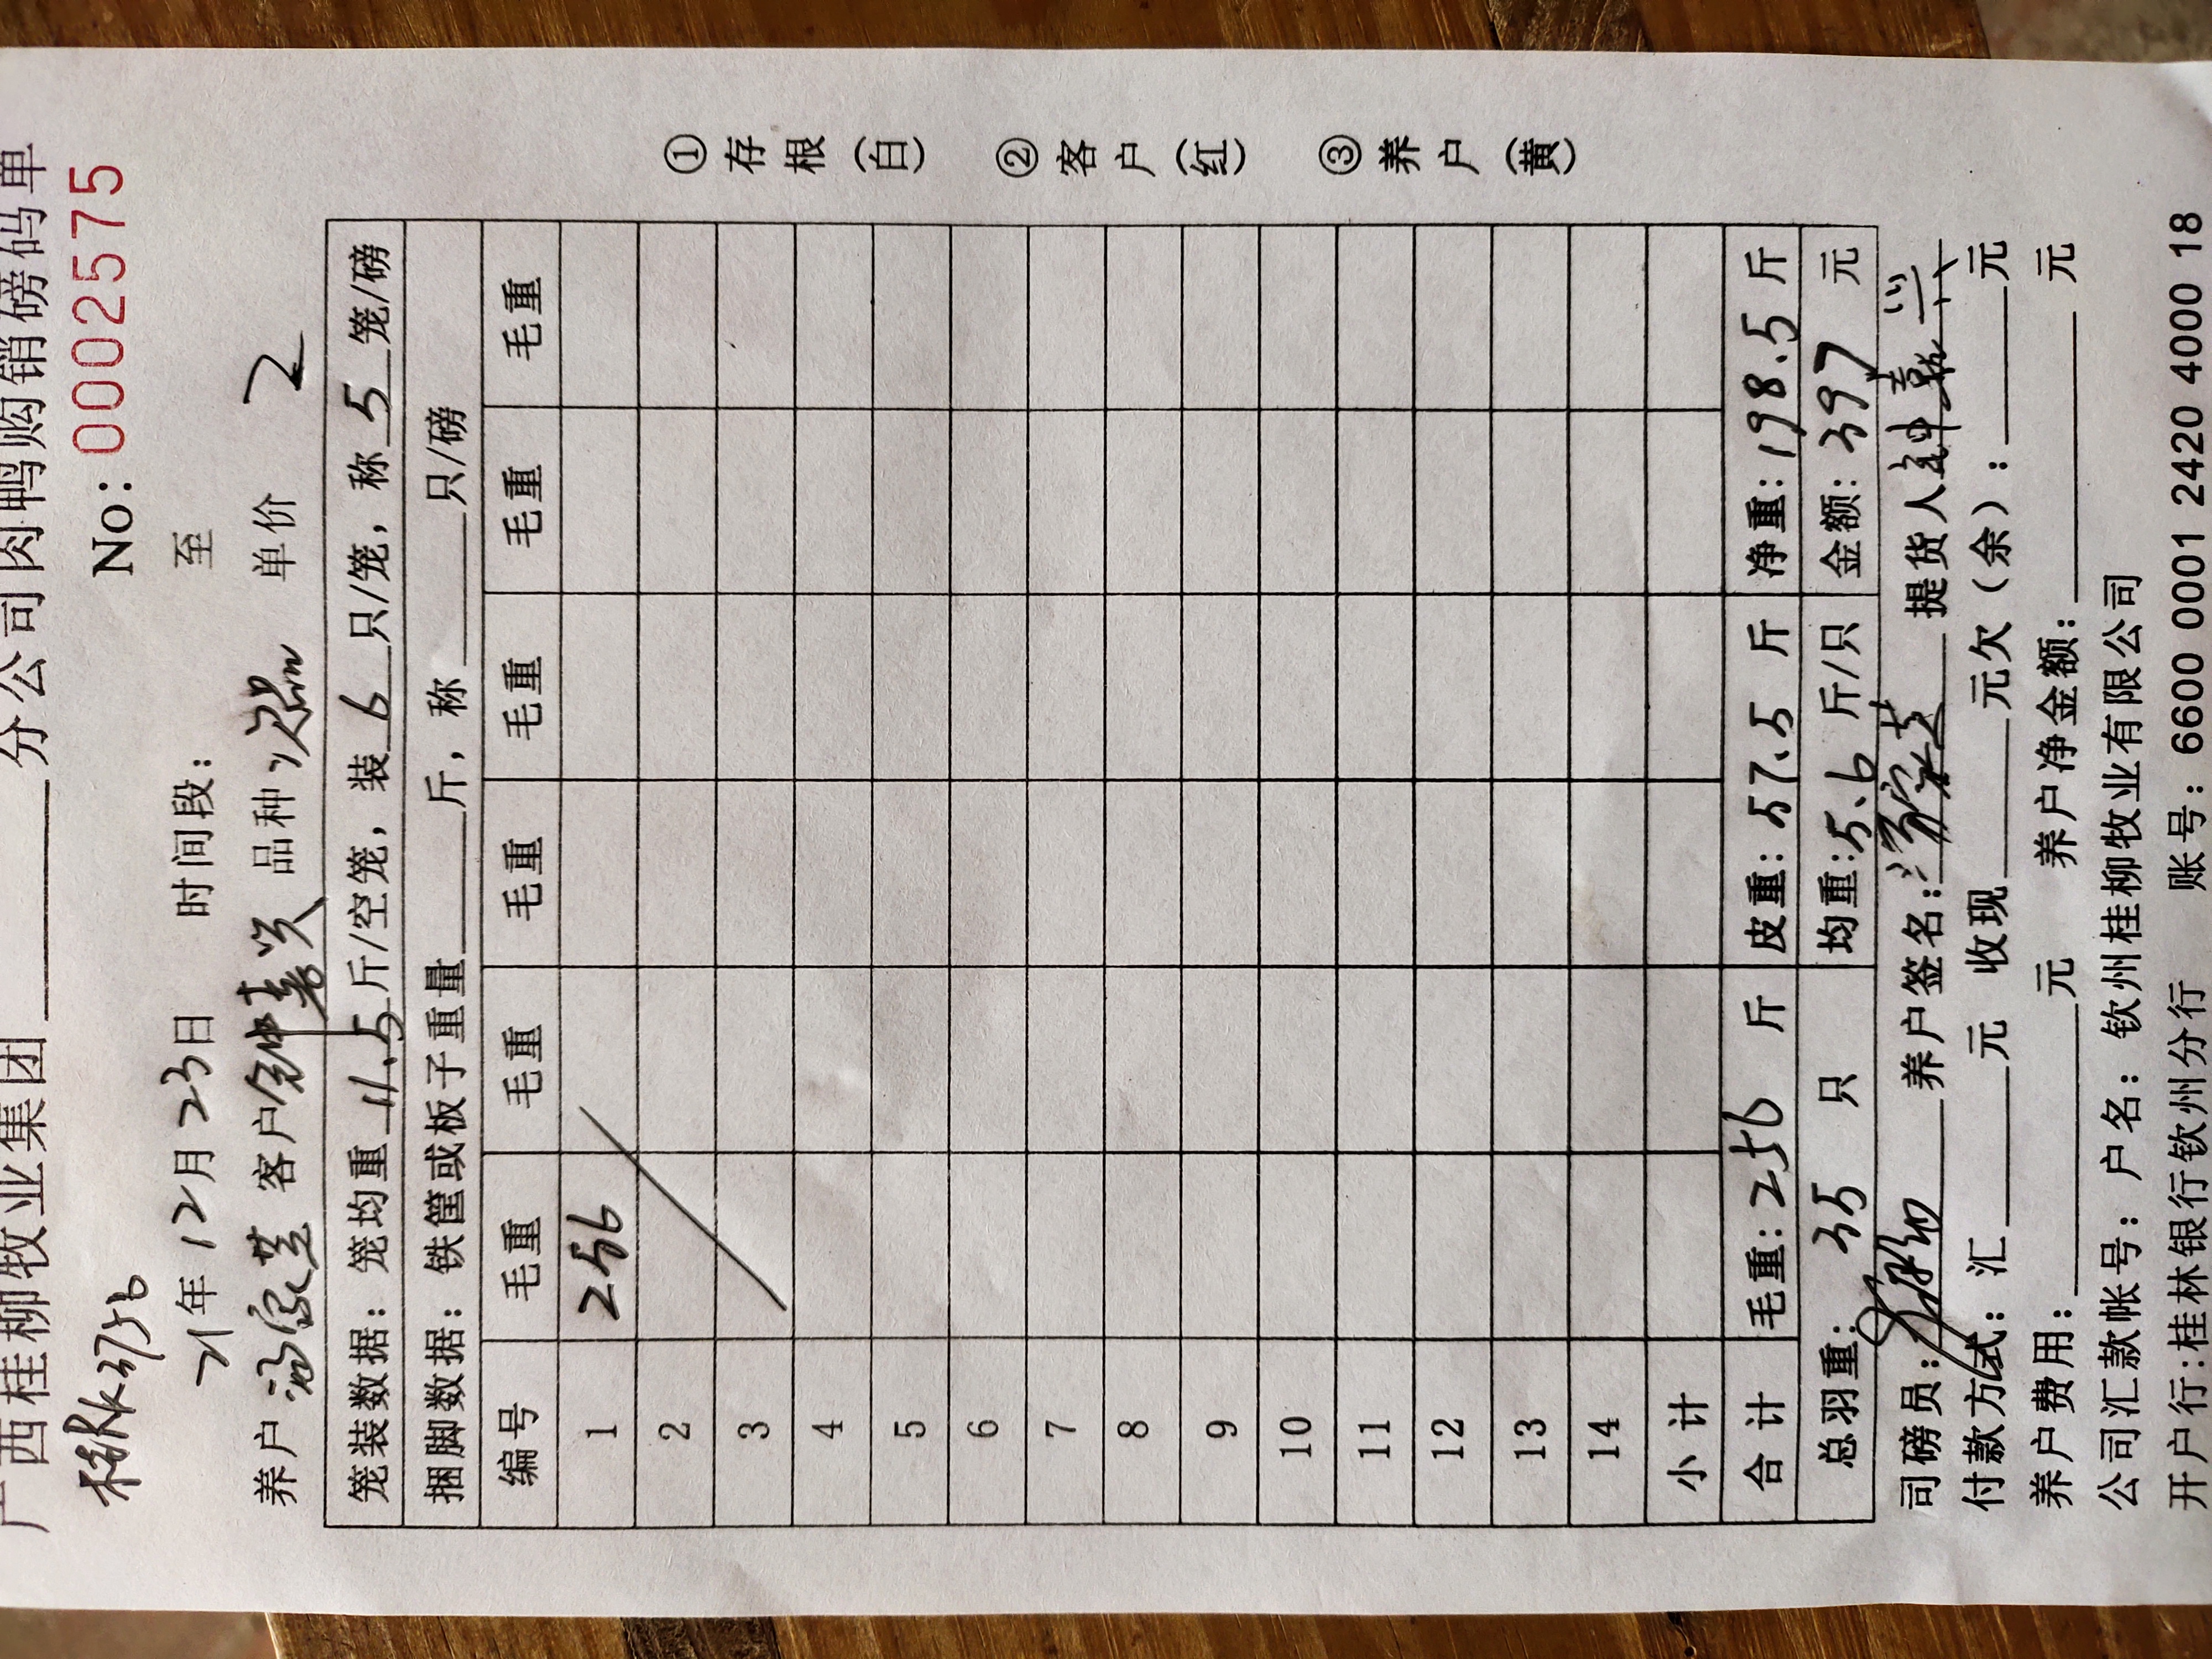 广西桂柳牧业集团______分公司肉鸭购销磅码单
No:0002575
21年12月23日 时间段: 至
养户 客户 钟嘉兴 品种 单价 2
笼装数据:笼均重 11.5 斤/空笼,装 6 只/笼,称 5 笼/磅
捆脚数据:铁筐或板子重量______斤,称______只/磅
编号 毛重 毛重 毛重 毛重 毛重 毛重
1 256
2
3
4
5
6
7
8
9
10
11
12
13
14
小计
合计 毛重:256 斤 皮重:57.5 斤 净重:198.5 斤
总羽重:35 只 均重:5.6 斤/只 金额:397 元
司磅员: 养户签名: 提货人 钟嘉兴
付款方式:汇______元 收现______元欠(余):______元
养户费用:______元 养户净金额:______元
公司汇款帐号:户名:钦州桂柳牧业有限公司
开户行:桂林银行钦州分行 账号:6600 0001 2420 4000 18
①存根(白) ②客户(红) ③养户(黄)